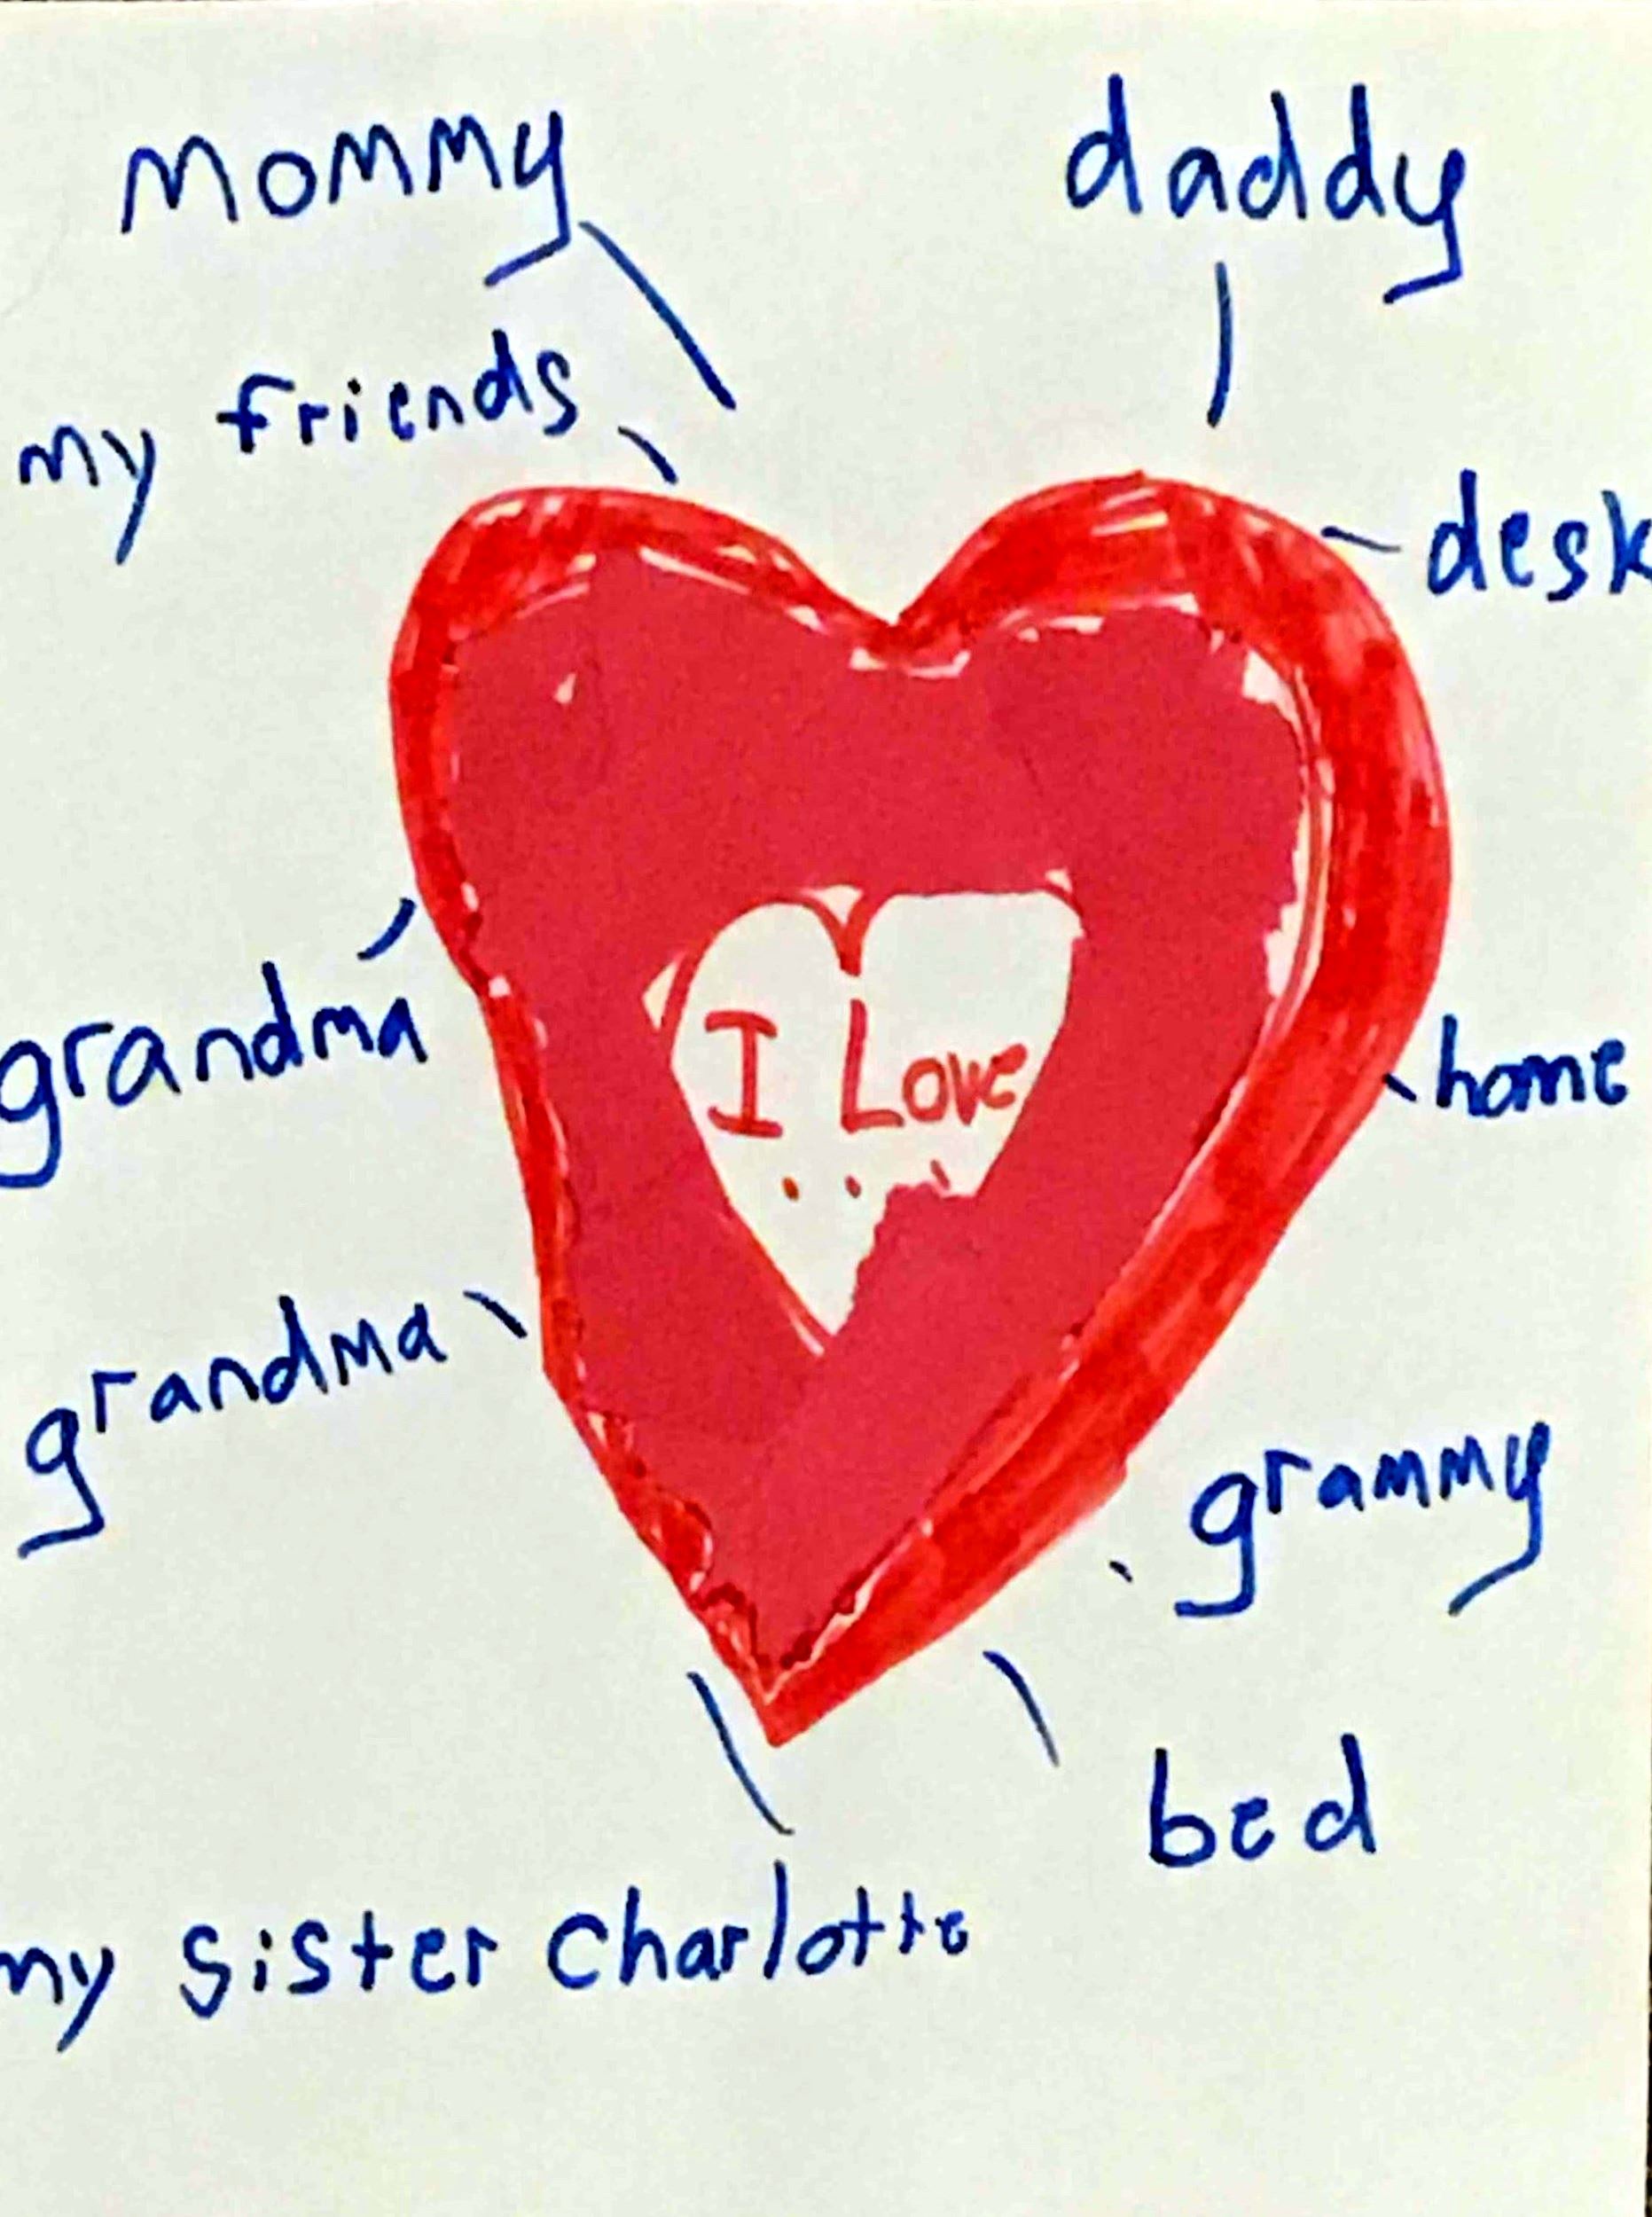 mommy
daddy
my friends
desk
I Love
...
grandma
home
grandma
grammy
bed
my sister Charlotte